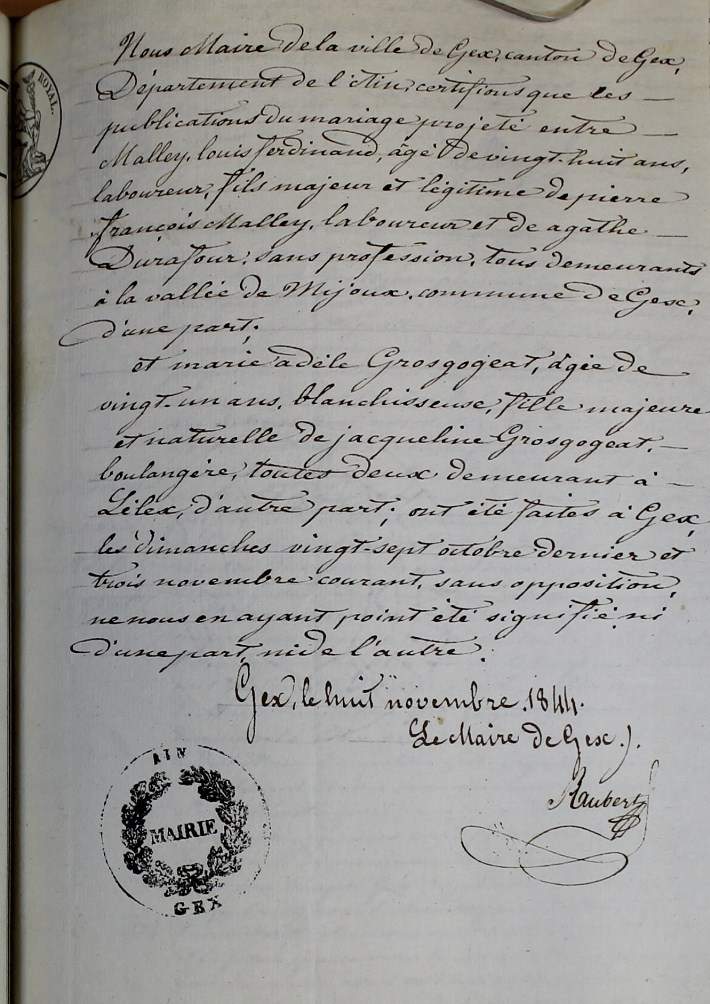 ROYAL.
Nous Maire de la ville de Gex, canton de Gex,
Département de l'Ain, certifions que les —
publications du mariage projeté entre —
Malley, louis ferdinand, âgé de vingt-huit ans,
laboureur, fils majeur et légitime de pierre
françois Malley, laboureur et de agathe —
Durafour, sans profession, tous demeurants
à la vallée de Mijoux, commune de Gex,
d'une part;
et marie adèle Grosgogeat, âgée de
vingt-un ans, blanchisseuse, fille majeure
et naturelle de jacqueline Grosgogeat, —
boulangère, toutes deux demeurant à —
Lélex, d'autre part; ont été faites à Gex,
les dimanches vingt-sept octobre dernier et
trois novembre courant, sans opposition,
ne nous en ayant point été signifié, ni
d'une part, ni de l'autre.
Gex, le huit novembre, 1844.
Le Maire de Gex).
AIN
MAIRIE
GEX